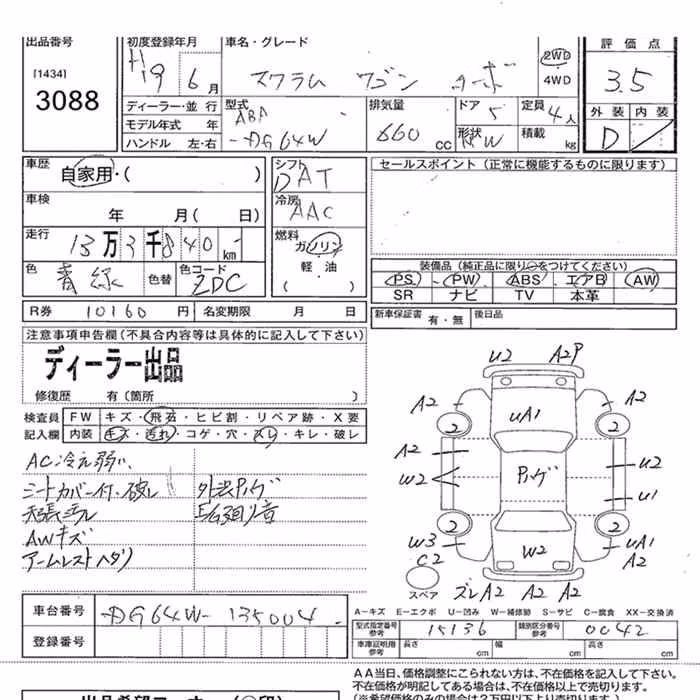 出品番号
[1434]
3088
初度登録年月 H19 6月
車名・グレード スクラム ワゴン ターボ
2WD
4WD
評価点
3.5
外装 内装
D
ディーラー・並行
モデル年式 年
ハンドル 左・右
型式 ABA
-DG64W
排気量 660 cc
ドア 5
形状 W
定員 4人
積載 kg
車歴 自家用・( )
車検 年 月( 日)
走行 13万3千840km
色 青緑 色替 色コード ZDC
シフト DAT
冷房 AAC
燃料 ガソリン
軽油
( )
セールスポイント (正常に機能するものに限ります)
装備品 (純正品に限り○をつけてください)
PS PW ABS エアB AW
SR ナビ TV 本革
R券 10160円 名変期限 月 日
新車保証書 有・無 後日品
注意事項申告欄(不具合内容等は具体的に記入して下さい)
ディーラー出品
修復歴 有(箇所 )
検査員 FW キズ・飛石・ヒビ割・リペア跡・X要
記入欄 内装 キズ・汚れ・コゲ・穴・スレ・キレ・破レ
AC冷え弱い
シートカバー付・破レ 外装Pハゲ
天張ヨゴレ
AWキズ
アームレストヘタリ
U2 A2P
A2 UA1 A2
2 2
A2
W2 Pハゲ U2
U1
2 2
W3 C2 W2 UA1 A2
スペア ズレA2 A2 A2
A-キズ E-エクボ U-凹み W-補修跡 S-サビ C-腐食 XX-交換済
車台番号 -DG64W-135004
登録番号
型式指定番号 参考 15136 類別区分番号 参考 0042
車庫証明用 参考 長さ cm 幅 cm 高さ cm
AA当日、価格調整にこられない方は、不在価格を記入して下さい。
不在価格が明記してある場合は、不在価格以上で売切ります。